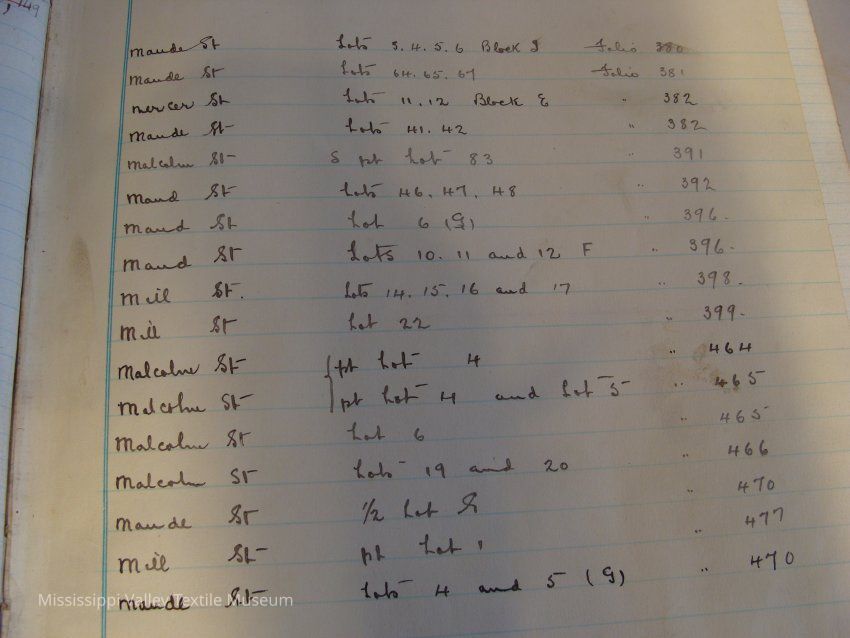 149
Maude St Lots 3.4.5.6 Block I Folio 380
Maude St Lots 64.65.67 Folio 381
Mercer St Lots 11.12 Block E " 382
Maude St Lots 41.42 " 382
Malcolm St S pt Lot 83 " 391
Maud St Lots 46.47.48 " 392
Maud St Lot 6 (G) " 396.
Maud St Lots 10.11 and 12 F " 396.
Mill St. Lots 14.15.16 and 17 " 398.
Mill St Lot 22 " 399.
Malcolm St { pt Lot 4 " 464
Malcolm St pt Lot 4 and Lot 5 " 465
Malcolm St Lot 6 " 465
Malcolm St Lots 19 and 20 " 466
Maude St 1/2 Lot " 470
Mill St pt Lot 1 " 477
Maude St Lots 4 and 5 (G) " 470
Mississippi Valley Textile Museum